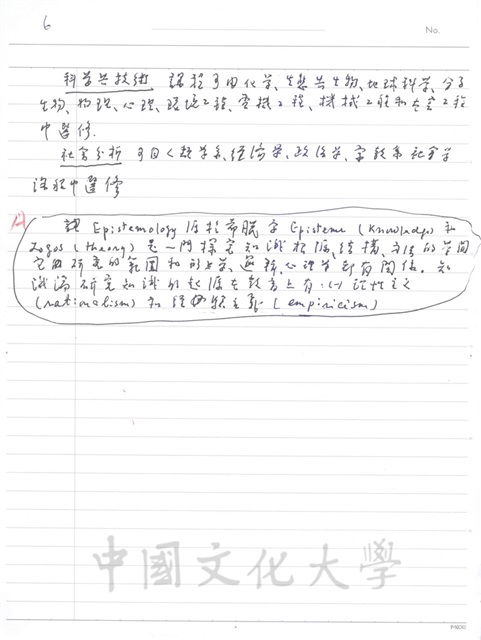 6
No.
科学与技術 課程可由化学、生態与生物、地球科学、分子
生物、物理、心理、環境工程、電機工程、機械工程和太空工程
中選修.
社会分析 可自人類学系、經濟学、政治学、宗教系社会学
課程中選修
Epistemology 源於希臘字 Episteme (Knowledge) 和
Logos (theory) 是一門探究知識根源、結構、方法的学問
它的研究的範圍和形上学、邏輯、心理学都有関係。知
識論研究知識的起源在教育上有(1)理性主义
(rationalism) 和經驗主義 (empiricism)
中國文化大學